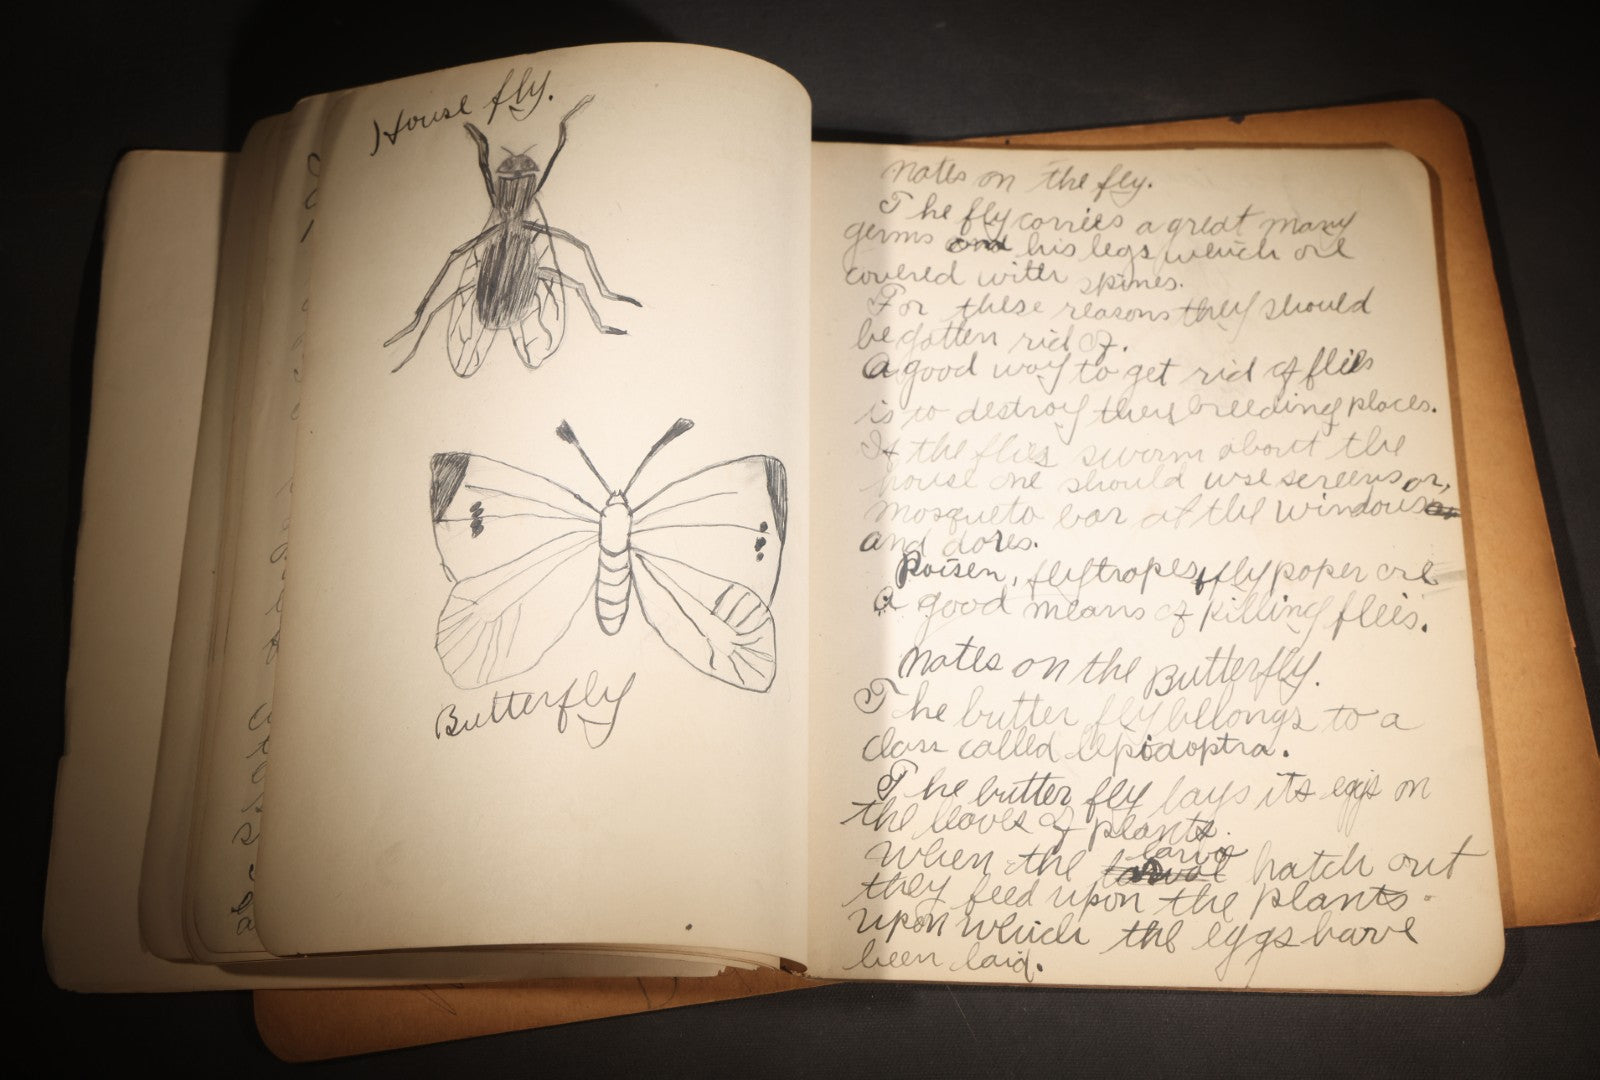 House fly.
Butterfly
Notes on the fly.
The fly carries a great many
germs and his legs which are
covered with spines.
For these reasons they should
be gotten rid of.
A good way to get rid of flies
is to destroy their breeding places.
If the flies swarm about the
house one should use screens or,
mosqueto bar at the windows or
and dores.
Poisen, flytrapes, fly paper are
a good means of killing fleis.
Notes on the Butterfly.
The butter fly bellongs to a
class called lepidoptra.
The butter fly lays its eggs on
the leaves of plants.
larva
When the larval hatch out
they feed upon the plants
upon which the eggs have
been laid.